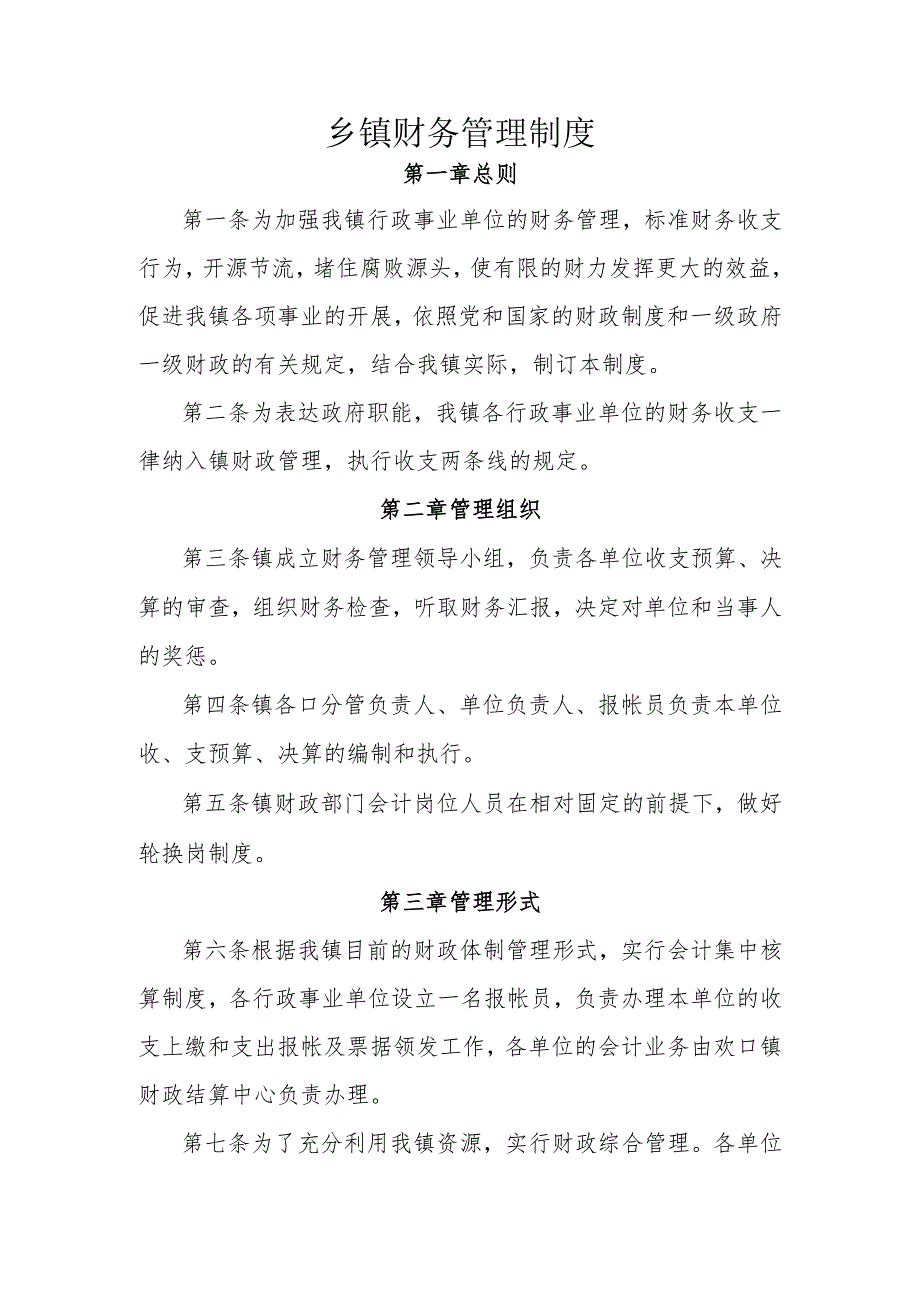 乡镇财务管理制度
第一章总则
第一条为加强我镇行政事业单位的财务管理，标准财务收支
行为，开源节流，堵住腐败源头，使有限的财力发挥更大的效益，
促进我镇各项事业的开展，依照党和国家的财政制度和一级政府
一级财政的有关规定，结合我镇实际，制订本制度。
第二条为表达政府职能，我镇各行政事业单位的财务收支一
律纳入镇财政管理，执行收支两条线的规定。
第二章管理组织
第三条镇成立财务管理领导小组，负责各单位收支预算、决
算的审查，组织财务检查，听取财务汇报，决定对单位和当事人
的奖惩。
第四条镇各口分管负责人、单位负责人、报帐员负责本单位
收、支预算、决算的编制和执行。
第五条镇财政部门会计岗位人员在相对固定的前提下，做好
轮换岗制度。
第三章管理形式
第六条根据我镇目前的财政体制管理形式，实行会计集中核
算制度，各行政事业单位设立一名报帐员，负责办理本单位的收
支上缴和支出报帐及票据领发工作，各单位的会计业务由欢口镇
财政结算中心负责办理。
第七条为了充分利用我镇资源，实行财政综合管理。各单位